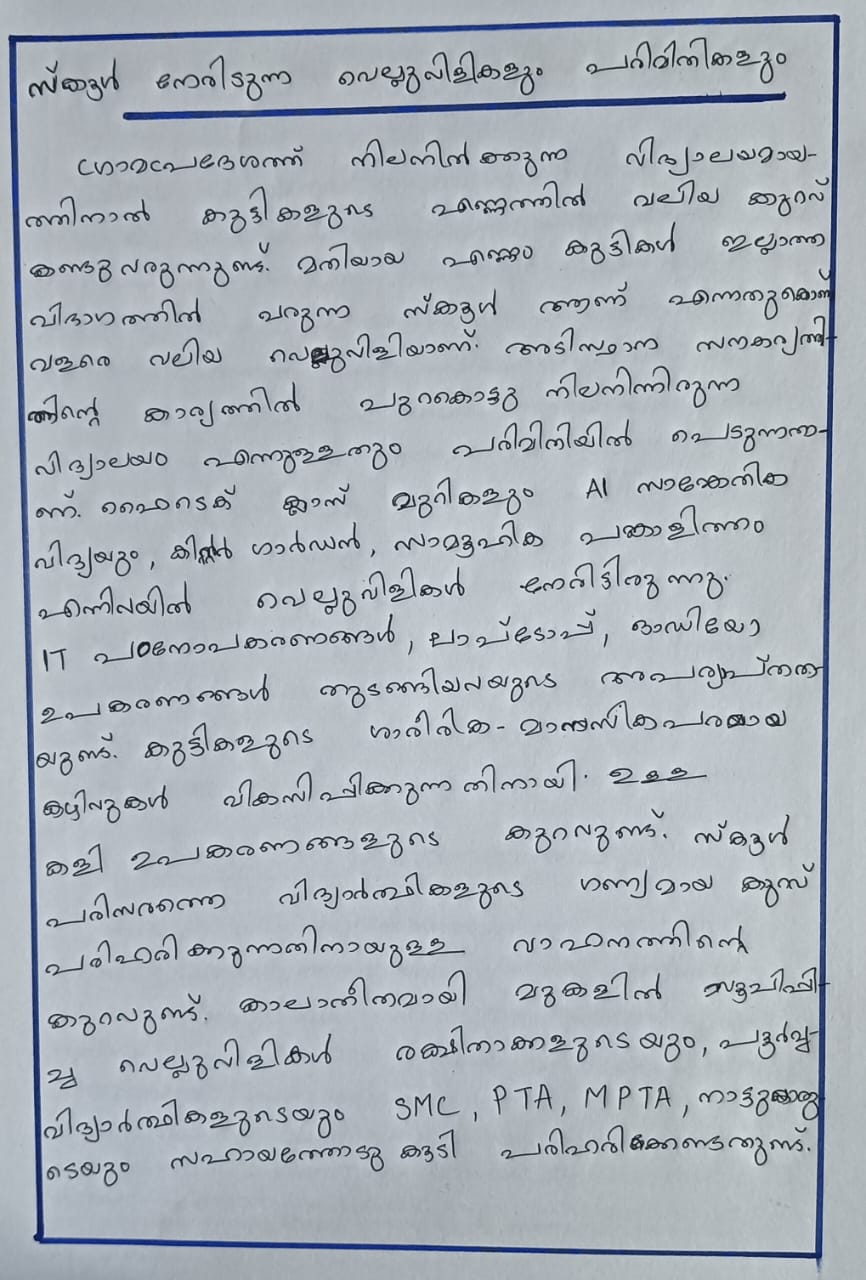 സ്കൂൾ നേരിടുന്ന വെല്ലുവിളികളും പരിമിതികളും
ഗ്രാമപ്രദേശത്ത് നിലനിൽക്കുന്ന വിദ്യാലയമായ-
ത്തിനാൽ കുട്ടികളുടെ എണ്ണത്തിൽ വലിയ കുറവ്
കണ്ടുവരുന്നുണ്ട്. മതിയായ എണ്ണം കുട്ടികൾ ഇല്ലാത്ത
വിഭാഗത്തിൽ വരുന്ന സ്കൂൾ ആണ് എന്നതുകൊണ്ട്
വളരെ വലിയ വെല്ലുവിളിയാണ്. അടിസ്ഥാന സൗകര്യത്തി-
ന്റെ കാര്യത്തിൽ പുറകൊട്ടു നിലനിന്നിരുന്ന
വിദ്യാലയം എന്നുള്ളതും പരിമിതിയിൽ പെടുന്നതാ-
ണ്. ഹൈടെക് ക്ലാസ് മുറികളും AI സാങ്കേതിക
വിദ്യയും, കിച്ചൻ ഗാർഡൻ, സാമൂഹിക പങ്കാളിത്തം
എന്നിവയിൽ വെല്ലുവിളികൾ നേരിട്ടിരുന്നു.
IT പഠനോപകരണങ്ങൾ, ലാപ്ടോപ്പ്, ഓഡിയോ
ഉപകരണങ്ങൾ തുടങ്ങിയവയുടെ അപര്യാപ്തത
യുണ്ട്. കുട്ടികളുടെ ശാരീരിക-മാനസീകപരമായ
കഴിവുകൾ വികസിപ്പിക്കുന്നതിനായി ഉള്ള
കളി ഉപകരണങ്ങളുടെ കുറവുണ്ട്. സ്കൂൾ
പരിസരത്തെ വിദ്യാർത്ഥികളുടെ ഗണ്യമായ കുറവ്
പരിഹരിക്കുന്നതിനായുള്ള വാഹനത്തിന്റെ
കുറവുണ്ട്. കാലാതീതമായി മുകളിൽ സൂചിപ്പി-
ച്ച വെല്ലുവിളികൾ രക്ഷിതാക്കളുടെയും, പൂർവ്വ-
വിദ്യാർത്ഥികളുടെയും SMC, PTA, MPTA, നാട്ടുകാരു
ടെയും സഹായത്തോടു കൂടി പരിഹരിക്കേണ്ടതുണ്ട്.